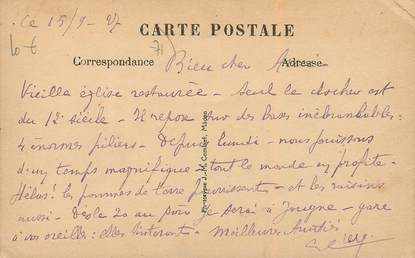 Ce 15/9-27
CARTE POSTALE
Correspondance Adresse
Bien cher
Vieille église restaurée - Seul le clocher est
du 12e siècle - Il repose sur des bases inébranlables:
4 énormes piliers - Depuis lundi - nous jouissons
d'un temps magnifique - tout le monde en profite -
Hélas! les pommes de terre pourrissent - et les raisins
aussi - Dès le 20 au soir je serai à Jougne - gare
à vos oreilles: elles tinteront - Meilleures Amitiés